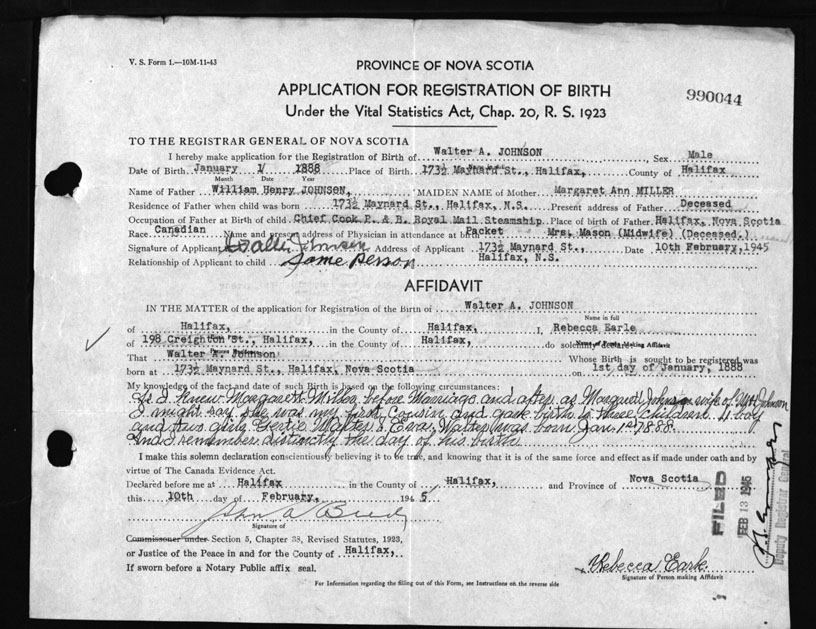 V. S. Form 1.—10M-11-43
PROVINCE OF NOVA SCOTIA
APPLICATION FOR REGISTRATION OF BIRTH
990044
Under the Vital Statistics Act, Chap. 20, R. S. 1923
TO THE REGISTRAR GENERAL OF NOVA SCOTIA
I hereby make application for the Registration of Birth of Walter A. JOHNSON, Sex Male
Date of Birth January 1/ 1888 Place of Birth 173½ Maynard St., Halifax, County of Halifax
Month Date Year
Name of Father William Henry JOHNSON, MAIDEN NAME of Mother Margaret Ann MILLER
Residence of Father when child was born 173½ Maynard St., Halifax, N.S. Present address of Father Deceased
Occupation of Father at Birth of child Chief Cook P. & B. Royal Mail Steamship Place of birth of Father Halifax, Nova Scotia
Race Canadian Name and present address of Physician in attendance at birth Packet Mrs. Mason (Midwife) (Deceased.)
Signature of Applicant Johnson Address of Applicant 173½ Maynard St., Date 10th February, 1945
Relationship of Applicant to child Same person Halifax, N.S.
AFFIDAVIT
IN THE MATTER of the application for Registration of the Birth of Walter A. JOHNSON
Name in full
of Halifax, in the County of Halifax, I, Rebecca Earle
of 198 Creighton St., Halifax, in the County of Halifax, do solemnly declare
Name of Party Making Affidavit
That Walter A. Johnson Whose Birth is sought to be registered was
born at 173½ Maynard St., Halifax, Nova Scotia on 1st day of January, 1888
My knowledge of the fact and date of such Birth is based on the following circumstances:
As I knew Margaret Miller before Marriage and after as Margaret Johnson wife of WH Johnson
I might say she was my first Cousin and gave birth to three Children. 1 boy
and two girls, Gertie Walter & Eva, Walter was born Jan. 1st 1888.
And I remember distinctly the day of his birth.
I make this solemn declaration conscientiously believing it to be true, and knowing that it is of the same force and effect as if made under oath and by
virtue of The Canada Evidence Act.
Declared before me at Halifax in the County of Halifax, and Province of Nova Scotia
this 10th day of February, 1945
Signature of
Commissioner under Section 5, Chapter 38, Revised Statutes, 1923,
or Justice of the Peace in and for the County of Halifax,
If sworn before a Notary Public affix seal.
Rebecca Earle
Signature of Person making Affidavit
For Information regarding the filling out of this Form, see Instructions on the reverse side
FILED
FEB 13 1945
Deputy Registrar General